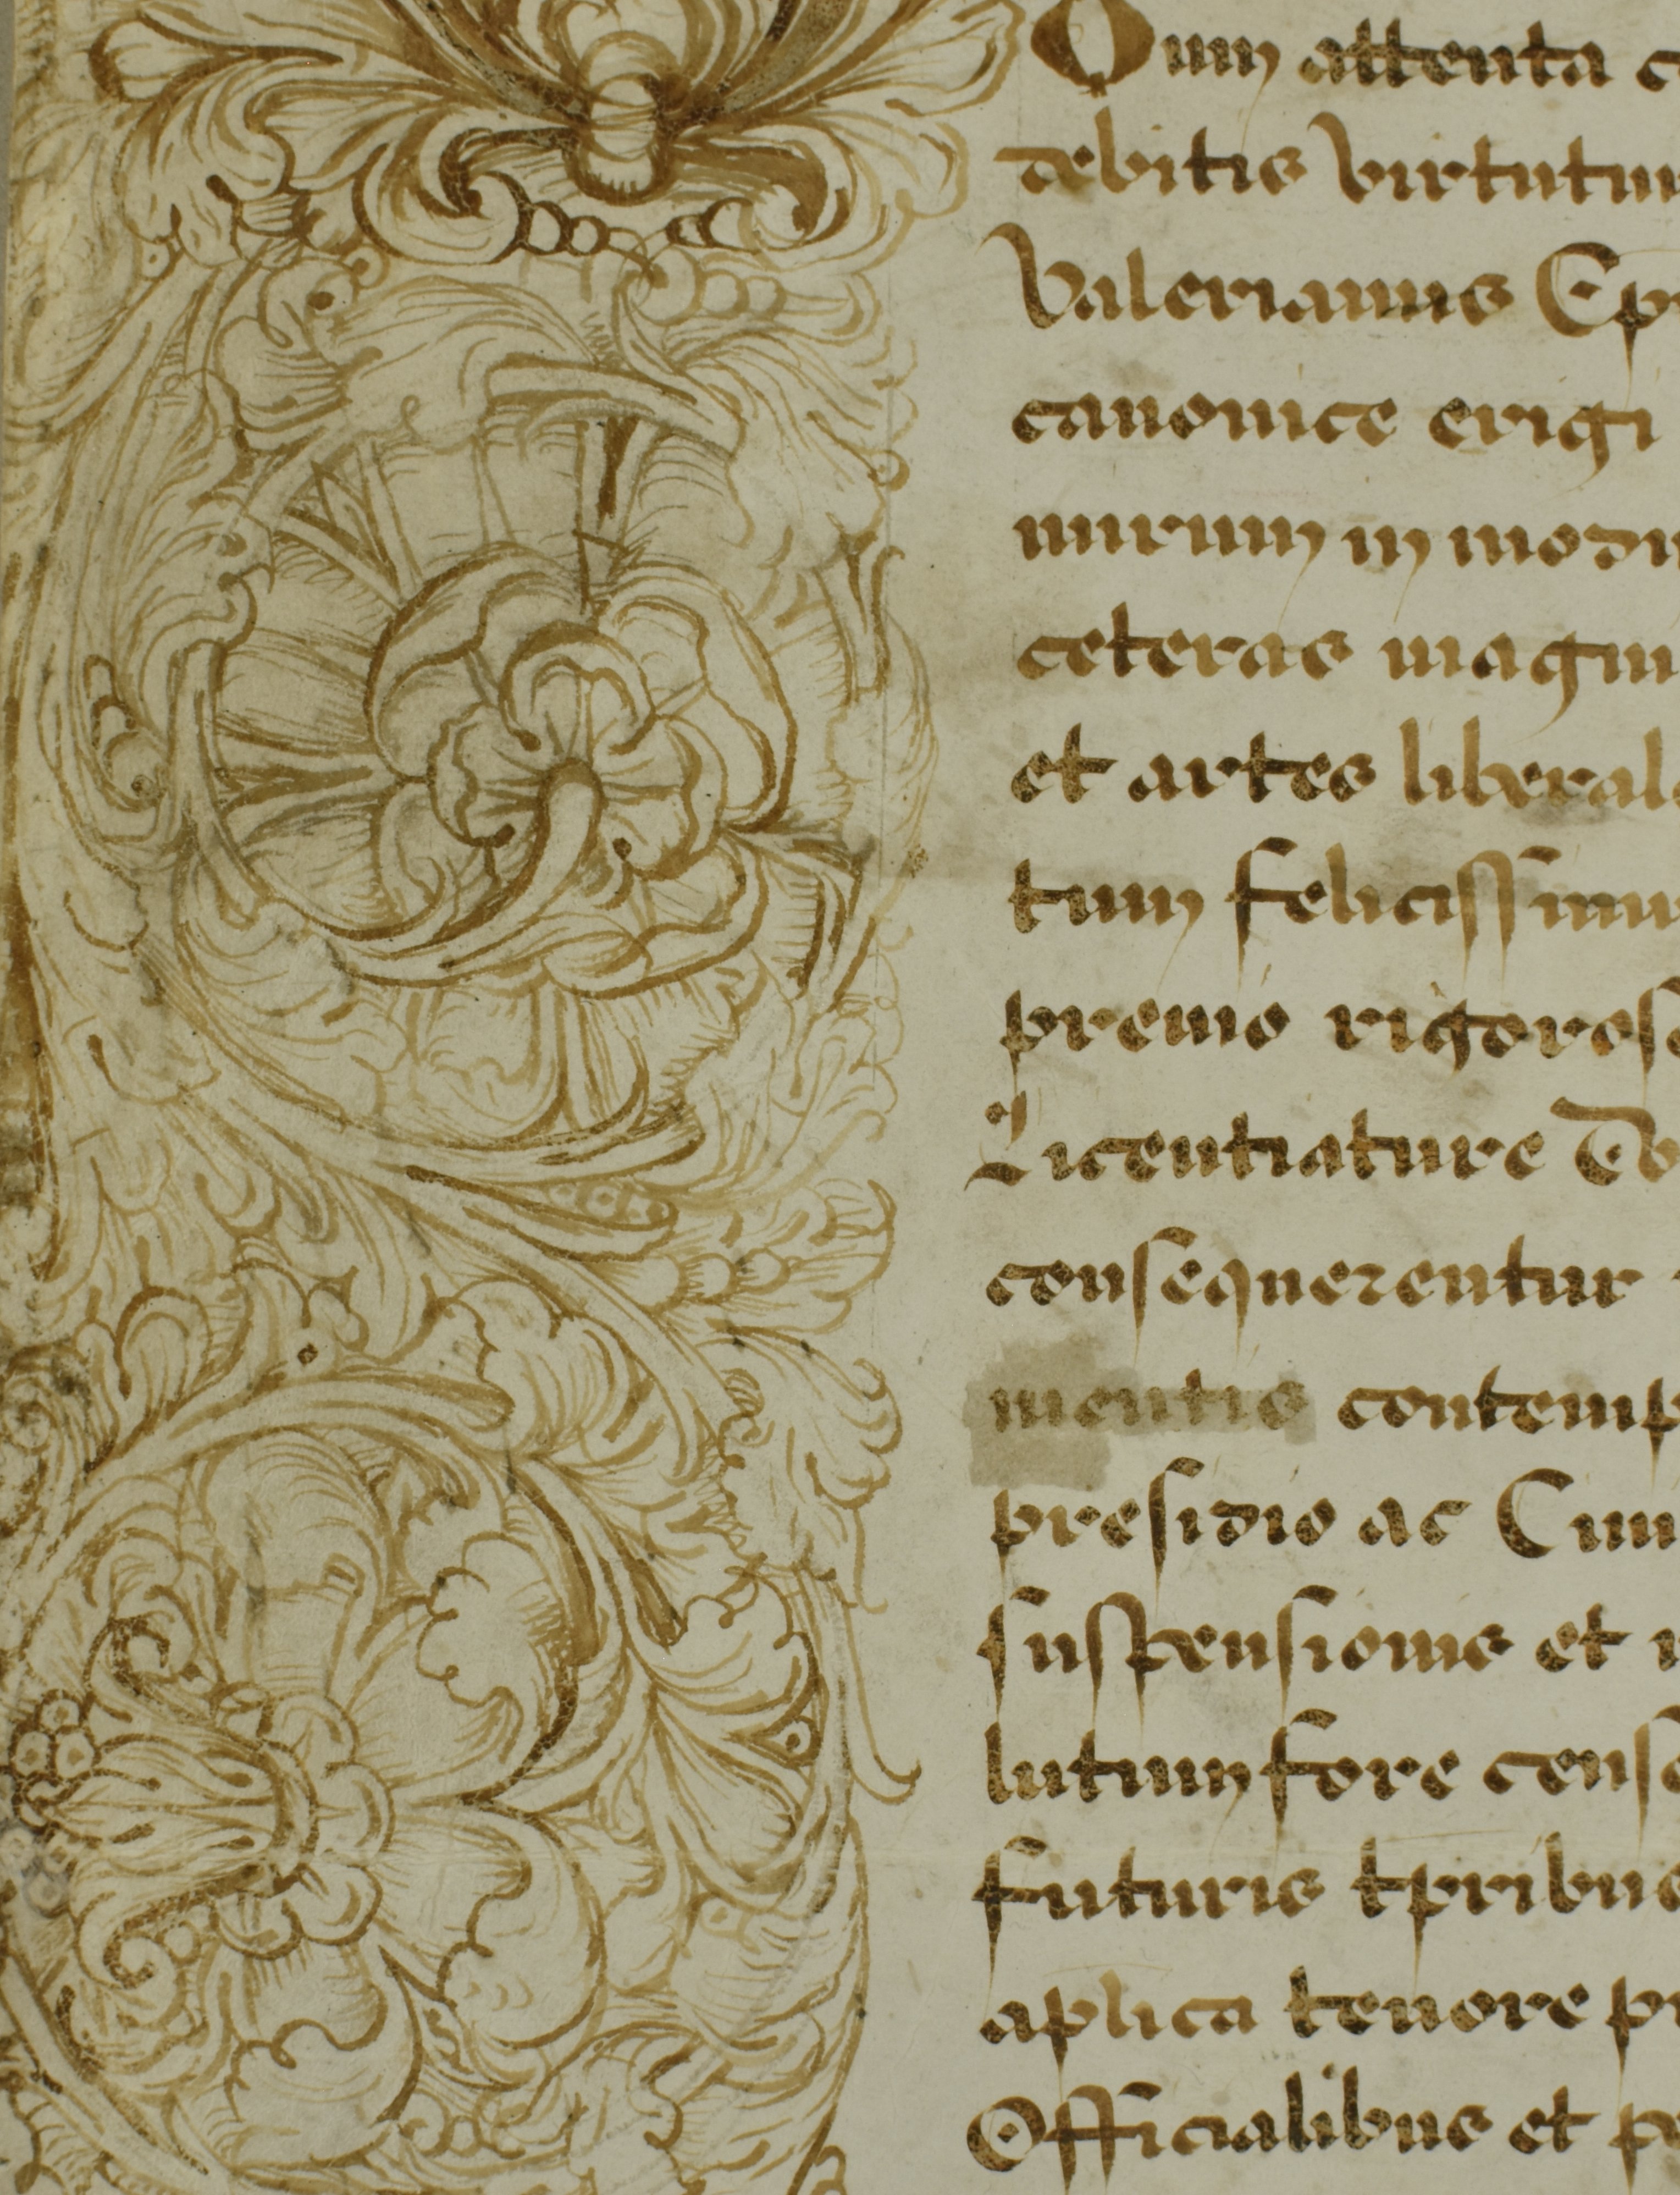 Cum attenta c
debitis virtutum
Valerianus Ep
canonice erigi
mirum in modu
ceteras magni
et artes liberal
tum felicissimu
premio rigoros
Licentiature
consequerentur
mentis contemp
presidio ac Cun
suspensionis et i
lutum fore cens
futuris tpribus
aplica tenore pr
Officialibus et p